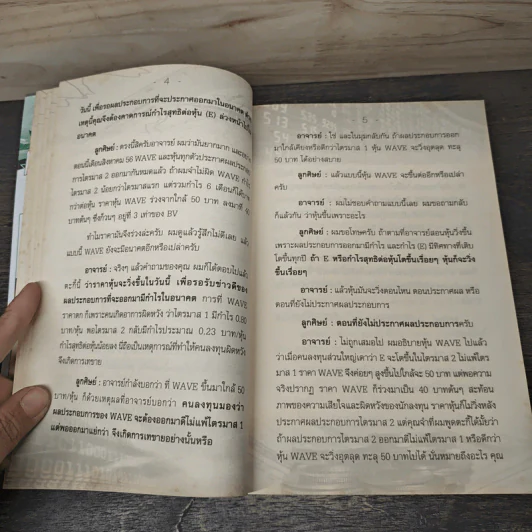 - 4 -
วันนี้ เพื่อรอผลประกอบการที่จะประกาศออกมาในอนาคต
เหตุนี้คุณจึงต้องคาดการณ์กำไรสุทธิต่อหุ้น (E) ล่วงหน้าไปใน
อนาคต
ลูกศิษย์ : ตรงนี้สิครับอาจารย์ ผมว่ามันยากมาก และ
ตอนนี้เดือนสิงหาคม 56 WAVE และหุ้นทุกตัวประกาศผลประกอบ
การไตรมาส 2 ออกมากันหมดแล้ว ถ้าผมจำไม่ผิด WAVE กำไร
ไตรมาส 2 น้อยกว่าไตรมาสแรก แต่รวมกำไร 6 เดือนก็ได้
กว่าต่อหุ้น ราคาหุ้น WAVE ร่วงจากใกล้ 50 บาท ลงมาที่ 40
บาทต้นๆ ซึ่งก้วนๆ อยู่ที่ 3 เท่าของ BV
ทำไมราคามันจึงร่วงล่ะครับ ผมดูแล้วรู้สึกไม่ดีเลย แล้ว
แบบนี้ WAVE ยังจะมีอนาคตอีกหรือเปล่าครับ
อาจารย์ : จริงๆ แล้วคำถามของคุณ ผมก็ได้ตอบไปแล้ว
ตะกี้นี้ ว่าราคาหุ้นจะวิ่งขึ้นในวันนี้ เพื่อรอรับข่าวดีของ
ผลประกอบการที่จะออกมามีกำไรในอนาคต การที่ WAVE
ราคาตก ก็เพราะคนเกิดอาการผิดหวัง ว่าไตรมาส 1 มีกำไร 0.80
บาท/หุ้น ตอไตรมาส 2 กลับมีกำไรประมาณ 0.23 บาท/หุ้น
กำไรสุทธิต่อหุ้นน้อยลง นี่ถือเป็นเหตุการณ์ที่ทำให้คนลงทุนผิดหวัง
จึงเกิดการเทขาย
ลูกศิษย์ : อาจารย์กำลังบอกว่า ที่ WAVE ขึ้นมาใกล้ 50
บาท/หุ้น ก็ด้วยเหตุผลที่อาจารย์บอกว่า คนลงทุนมองว่า
ผลประกอบการของ WAVE จะต้องออกมาดีไม่แพ้ไตรมาส 1
แต่พอออกมาแย่กว่า จึงเกิดการเทขายอย่างนั้นหรือ
- 5 -
อาจารย์ : ใช่ และในมุมกลับกัน ถ้าผลประกอบการออก
มาใกล้เคียงหรือดีกว่าไตรมาส 1 หุ้น WAVE จะวิ่งอุตลุด ทะลุ
50 บาท ได้อย่างสบาย
ลูกศิษย์ : แล้วแบบนี้หุ้น WAVE จะขึ้นต่ออีกหรือเปล่า
ครับ
อาจารย์ : ผมไม่ชอบคำถามแบบนี้เลย ผมขอถามกลับ
ก็แล้วกัน ว่าหุ้นขึ้นเพราะอะไร
ลูกศิษย์ : ผมขอโทษครับ ถ้าตามที่อาจารย์สอนหุ้นวิ่งขึ้น
เพราะผลประกอบการออกมามีกำไร และกำไร (E) มีทิศทางที่เติบ
โตขึ้นทุกปี ถ้า E หรือกำไรสุทธิต่อหุ้นโตขึ้นเรื่อยๆ หุ้นก็จะวิ่ง
ขึ้นเรื่อยๆ
อาจารย์ : แล้วหุ้นมันจะวิ่งตอนไหน ตอนประกาศผล หรือ
ตอนที่ยังไม่ประกาศผลประกอบการ
ลูกศิษย์ : ตอนที่ยังไม่ประกาศผลประกอบการครับ
อาจารย์ : ไม่ถูกเสมอไป ผมอธิบายหุ้น WAVE ไปแล้ว
ว่าเมื่อคนลงทุนส่วนใหญ่เดาว่า E จะโตขึ้นในไตรมาส 2 ไม่แพ้ไตร
มาส 1 ราคา WAVE จึงค่อยๆ สูงขึ้นไปใกล้จะ 50 บาท แต่พอความ
จริงปรากฏ ราคา WAVE ก็ร่วงมาเป็น 40 บาทต้นๆ สะท้อน
ภาพของความเสียใจและผิดหวังของนักลงทุน ราคาหุ้นก็ไม่วิ่งหลัง
ประกาศผลประกอบการไตรมาส 2 แต่คุณจำที่ผมพูดตะกี้ได้มั้ยว่า
ถ้าผลประกอบการไตรมาส 2 ออกมาดีไม่แพ้ไตรมาส 1 หรือดีกว่า
หุ้น WAVE จะวิ่งอุตลุด ทะลุ 50 บาทไปได้ นั่นหมายถึงอะไร คุณ